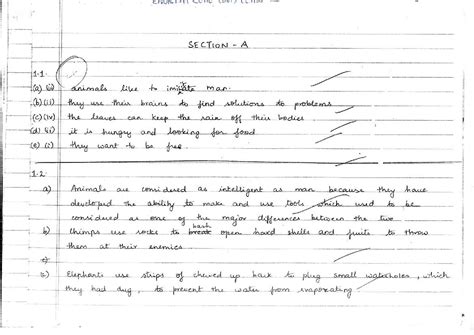 SECTION - A
1.1
(a) (ii) animals like to imitate man.
(b) (iii) they use their brains to find solutions to problems
(c) (iv) the leaves can keep the rain off their bodies
(d) (ii) it is hungry and looking for food
(e) (i) they want to be free.
1.2
a) Animals are considered as intelligent as man because they have
developed the ability to make and use tools which used to be
considered as one of the major differences between the two
b) Chimps use rocks to bash open hard shells and fruits to throw
them at their enemies.
c) Elephants use strips of chewed up bark to plug small waterholes, which
they had dug, to prevent the water from evaporating